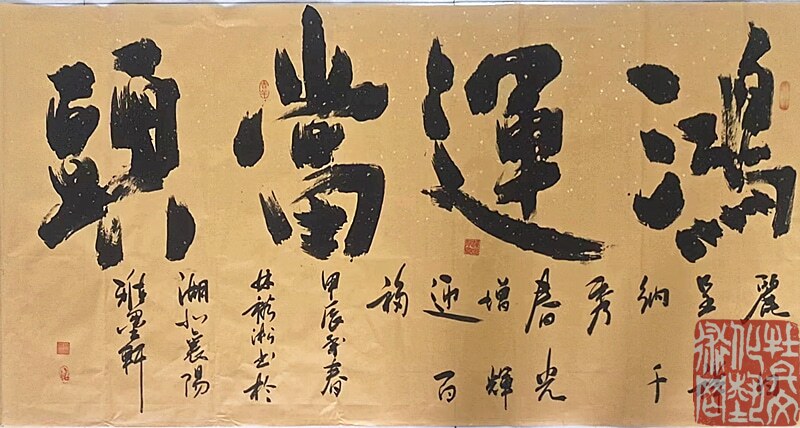 鴻運當頭
麗
呈
納千
秀
春光
增輝
迎百
福
甲辰年春
林 淞书於
湖北襄陽
雅墨軒